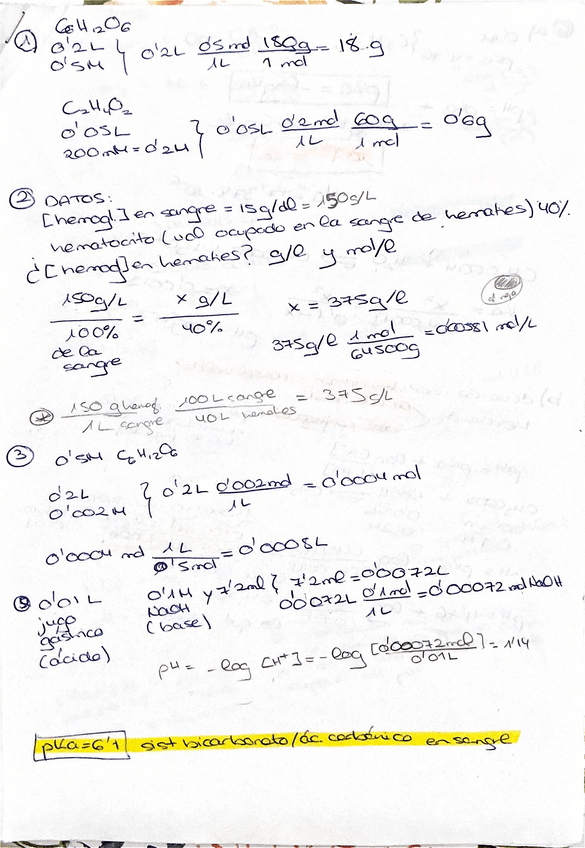 ① C6H12O6
0'2L
0'5M } 0'2L 0'5mol/1L 180g/1mol = 18 g
C2H4O2
0'05L
200mM = 0'2M } 0'05L 0'2mol/1L 60g/1mol = 0'6g
② DATOS:
[hemogl.] en sangre = 15g/dl = 150g/L
hematocito (vol ocupado en la sangre de hematies) 40%.
¿[hemog] en hematies? g/l y mol/l
150g/L / 100% = x g/L / 40% x = 375g/l
de la sangre
375g/l 1 mol/64500g = 0'00581 mol/L
150 g hemog./1L sangre 100L sangre/40L hematies = 375g/L
③ 0'5M C6H12O6
0'2L
0'002M } 0'2L 0'002mol/1L = 0'0004 mol
0'0004 mol 1L/0'5mol = 0'0008L
⑤ 0'01L 0'1M y 7'2ml } 7'2ml = 0'0072L
jugo NaOH 0'0072L 0'1mol/1L = 0'00072 mol NaOH
gástrico (base)
(ácido)
pH = -log [H+] = -log [0'00072mol]/0'01L = 1'14
pKa = 6'1 sist bicarbonato/ác carbónico en sangre